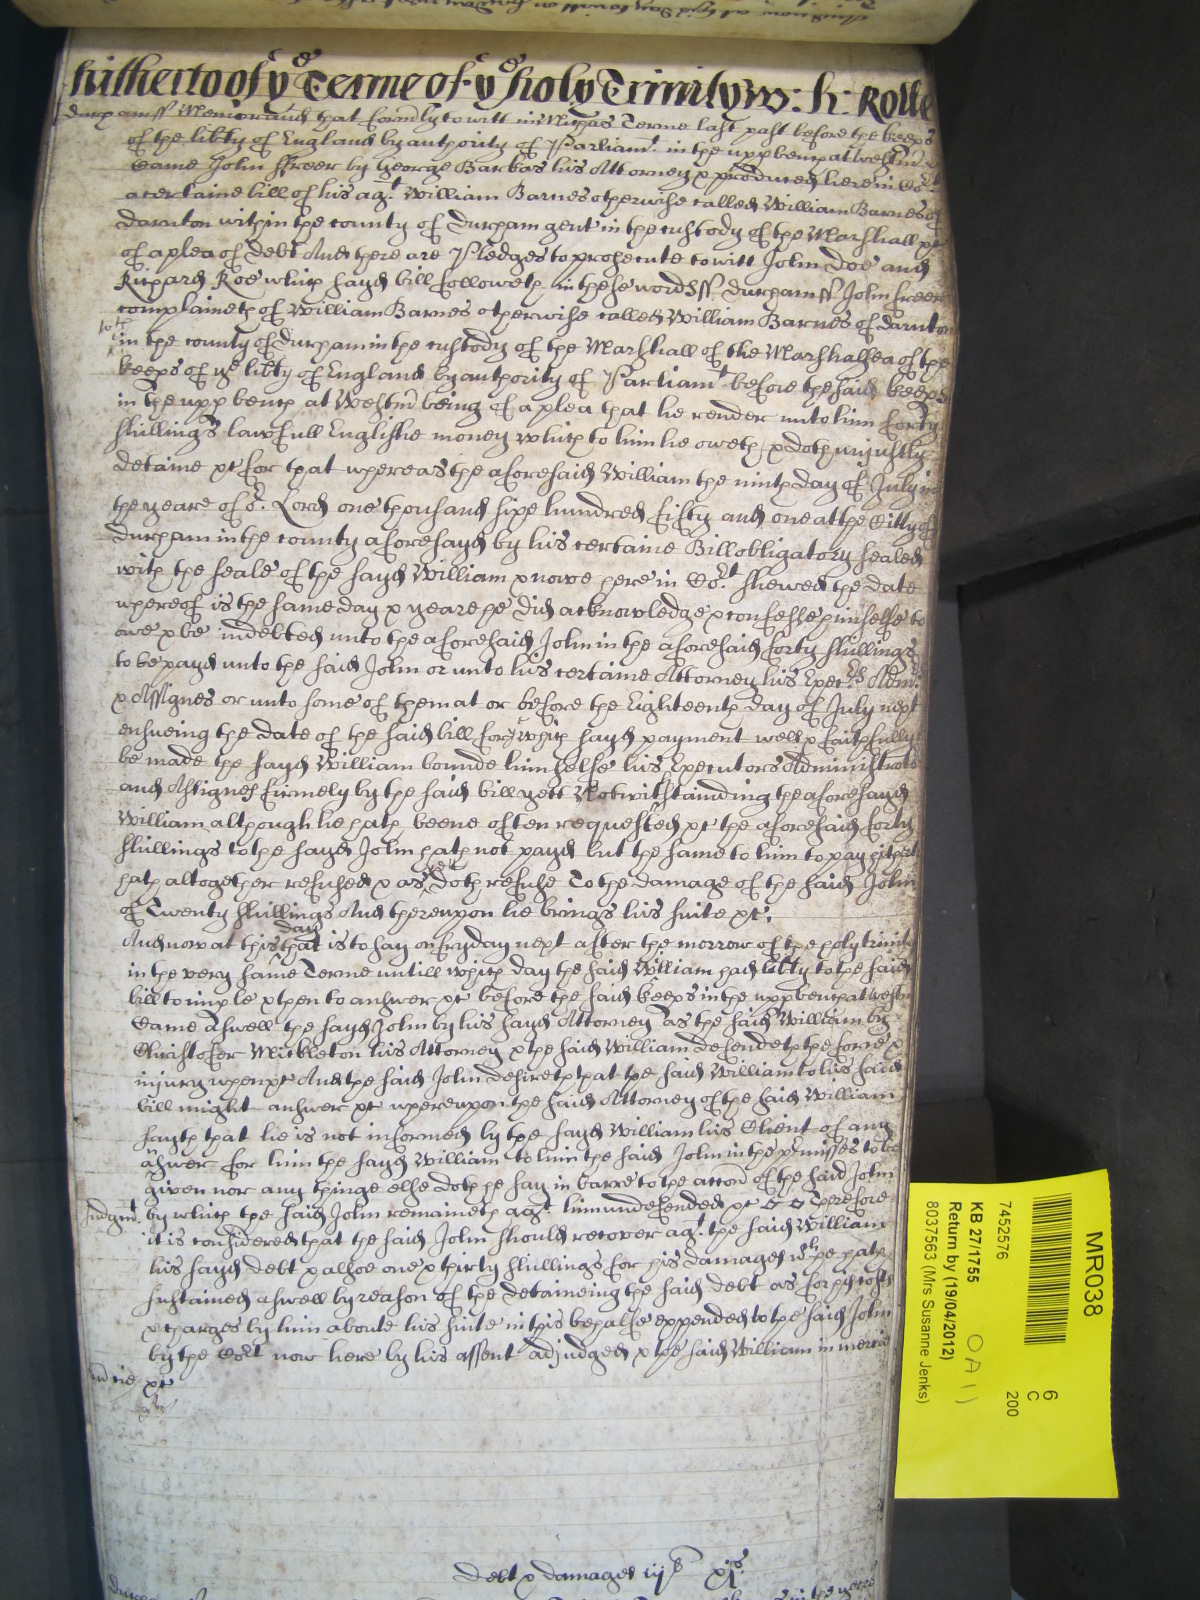 hitherto of ye Terme of ye holy Trinity w: h: Rolle
Durham ss Memorand that formly to witt in Michas Terme last past before the keeps
of the libty of England by authority of Parliamt. in the upp bench at Westmr
Came John ffreer by George Barkas his Attorney & produced here in Cort
a certaine bill of his agt William Barnes otherwise called William Barnes of
Darnton within the county of Durham gent in the custody of the Marshall &c
of a plea of debt And there are Pledges to prosecute to witt John Doe and
Richard Roe which sayd bill followeth in these words ss Durham ss John freer
complaineth of William Barnes otherwise called William Barnes of Darnton
wth in the county of Durham in the custody of the Marshall of the Marshalsea of the
keeps of ye libty of England by authority of Parliamt before the said keeps
in the upp bench at Westmr being of a plea that he render unto him forty
shillings lawfull Englishe money which to him he oweth & doth unjustly
detaine &c for that whereas the aforesaid William the ninth day of July in
the yeare of or. Lord one thousand sixe hundred fifty and one at the Citty of
Durham in the county aforesayd by his certaine Bill obligatory sealed
with the seale of the sayd William & nowe here in Cort shewed the date
whereof is the same day & yeare he did acknowledge & confesse himselfe to
owe & be indebted unto the aforesaid John in the aforesaid forty shillings
to be payd unto the said John or unto his certaine Attorney his Execrs Admrs
& Assignes or unto some of them at or before the Eighteenth day of July next
ensueing the date of the said bill for which sayd payment well & faithfully
be made the sayd William bounde himselfe his Executors Administrators
and Assignes firmely by the said bill yett Notwithstanding the aforesayd
William although he hath beene often requested &c the aforesaid forty
shillings to the sayd John hath not payd but the same to him to pay hitherto
hath altogether refused & as yett doth refuse To the damage of the said John
of Twenty shillings And thereupon he brings his suite &c.
And now at this day that is to say on fryday next after the morrow of the holy trinity
in the very same Terme untill which day the said William had libty to the said
bill to imple & then to answer &c before the said keeps in the upp bench at Westmr
Came aswell the sayd John by his sayd Attorney as the said William by
Christofer Mickleton his Attorney & the said William defendeth the force &
injury when &c And the said John desireth that the said William to his said
bill might answer &c whereupon the said Attorney of the said William
sayth that he is not informed by the sayd William his Client of any
answer for him the sayd William to him the said John in the premisses to be
given nor any thinge else doth he say in barre to the accon of the said John
Judgmt. by which the said John remaineth agt. him undefended &c Therefore
it is considered that the said John should recover agt. the said William
his sayd debt & alsoe one & thirty shillings for his damages wch he hath
sustained aswell by reason of the detaineing the said debt as for his costs
& charges by him about his suite in this behalfe expended to the said John
by the Cort now here by his assent adjudged & the said William in mercie
&c
Debt & damages iijli xjs.
MR038
6
C
200
7452576
KB 27/1755
Return by (19/04/2012)
8037563 (Mrs Susanne Jenks)